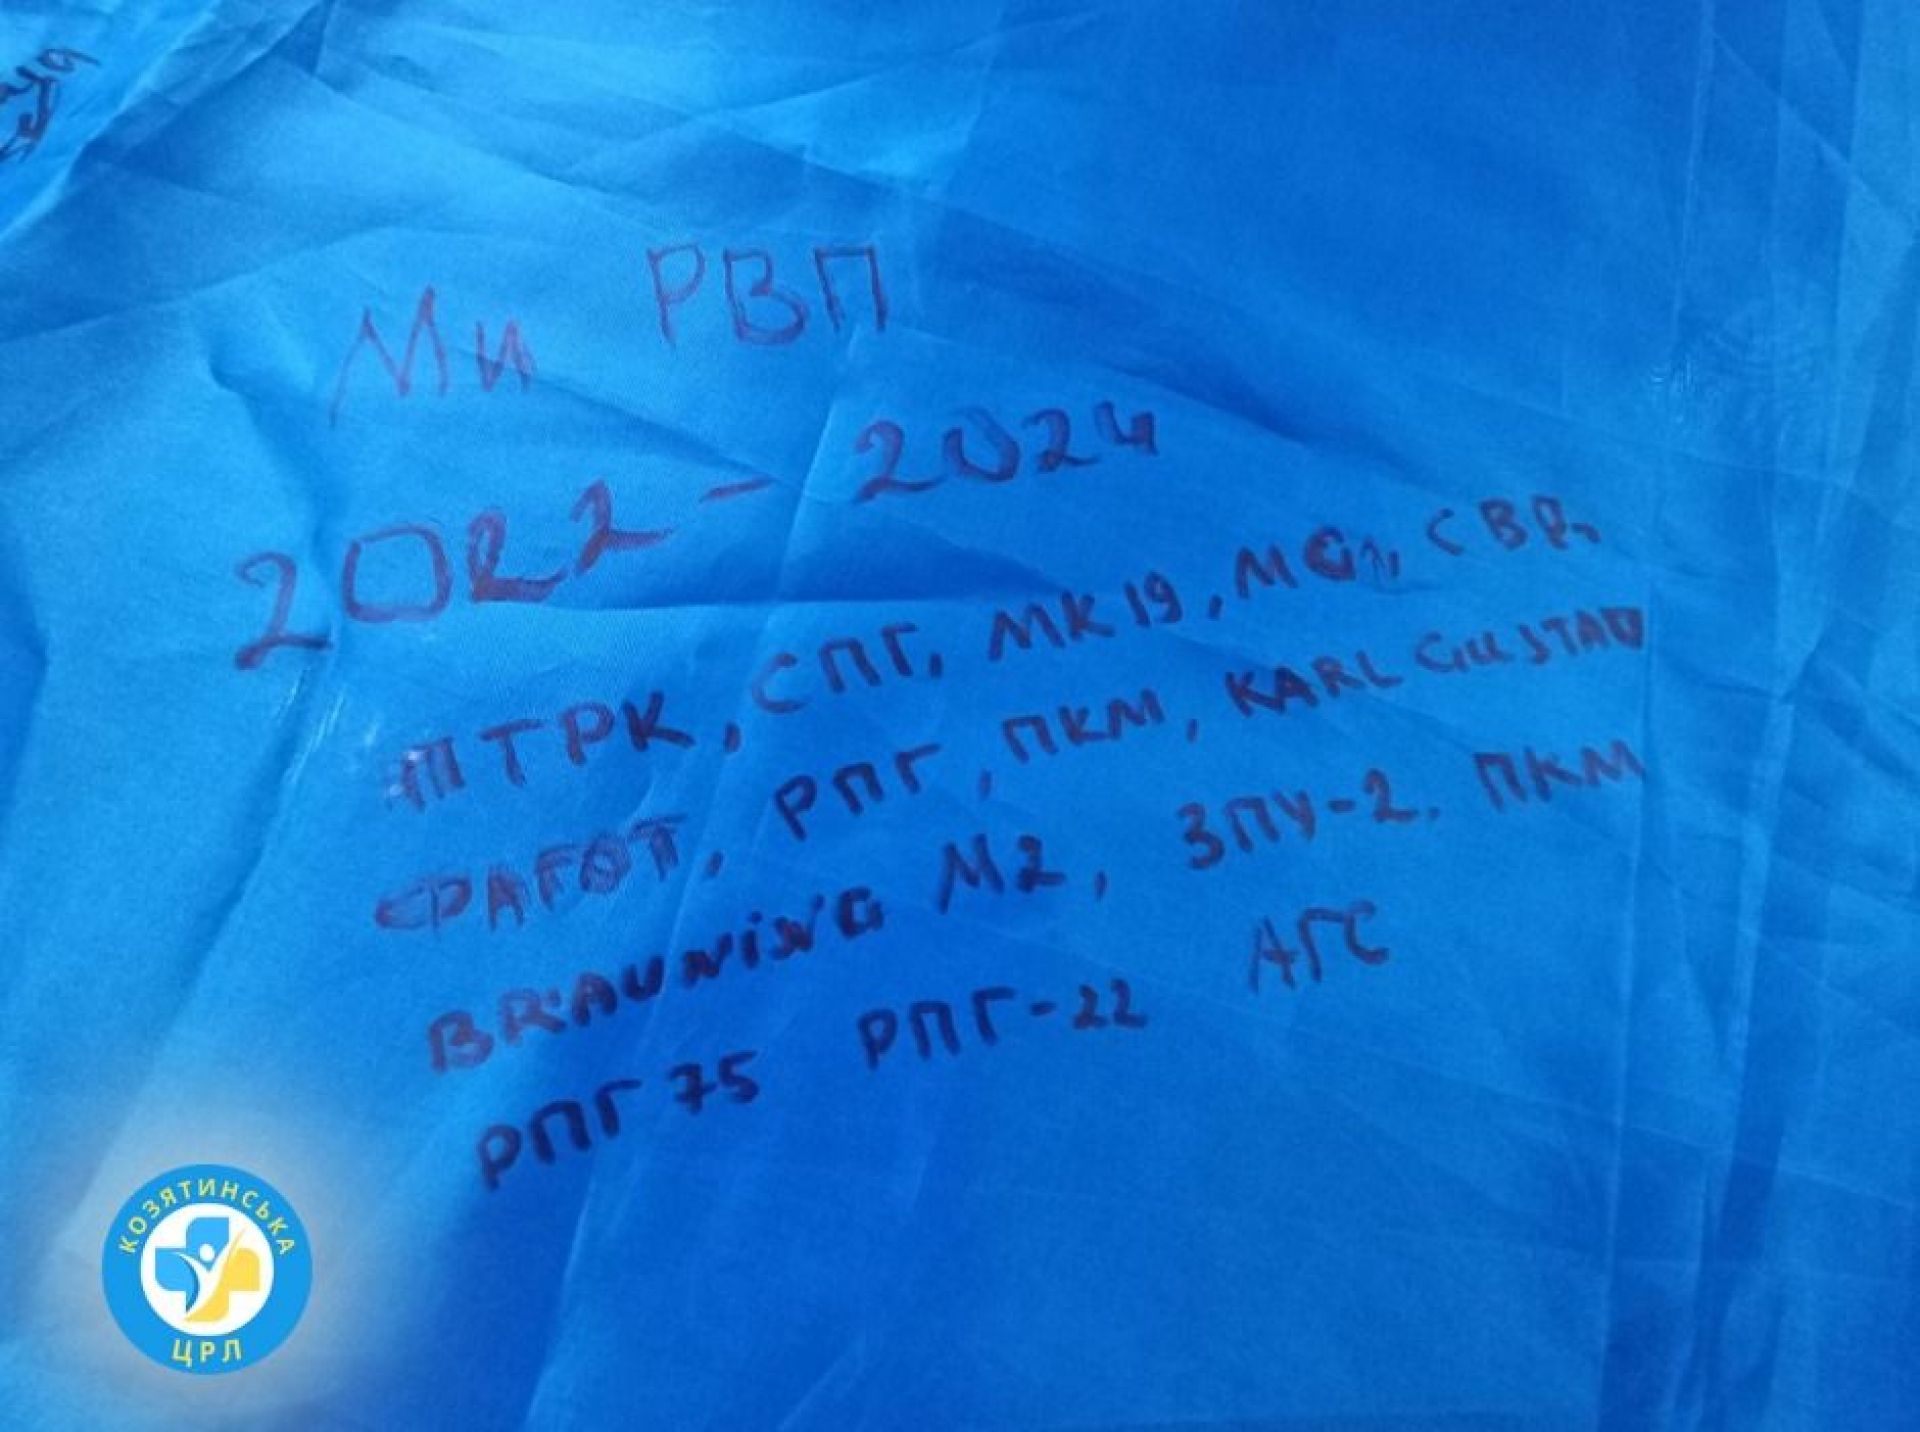 Ми РВП
2022-2024
ПТРК, СПГ, МК19, МG, СВД,
ФАГОТ, РПГ, ПКМ, KARL GUSTAV
BRAUNiNG M2, ЗПУ-2. ПКМ
РПГ 75 РПГ-22 АГС
КОЗЯТИНСЬКА
ЦРЛ